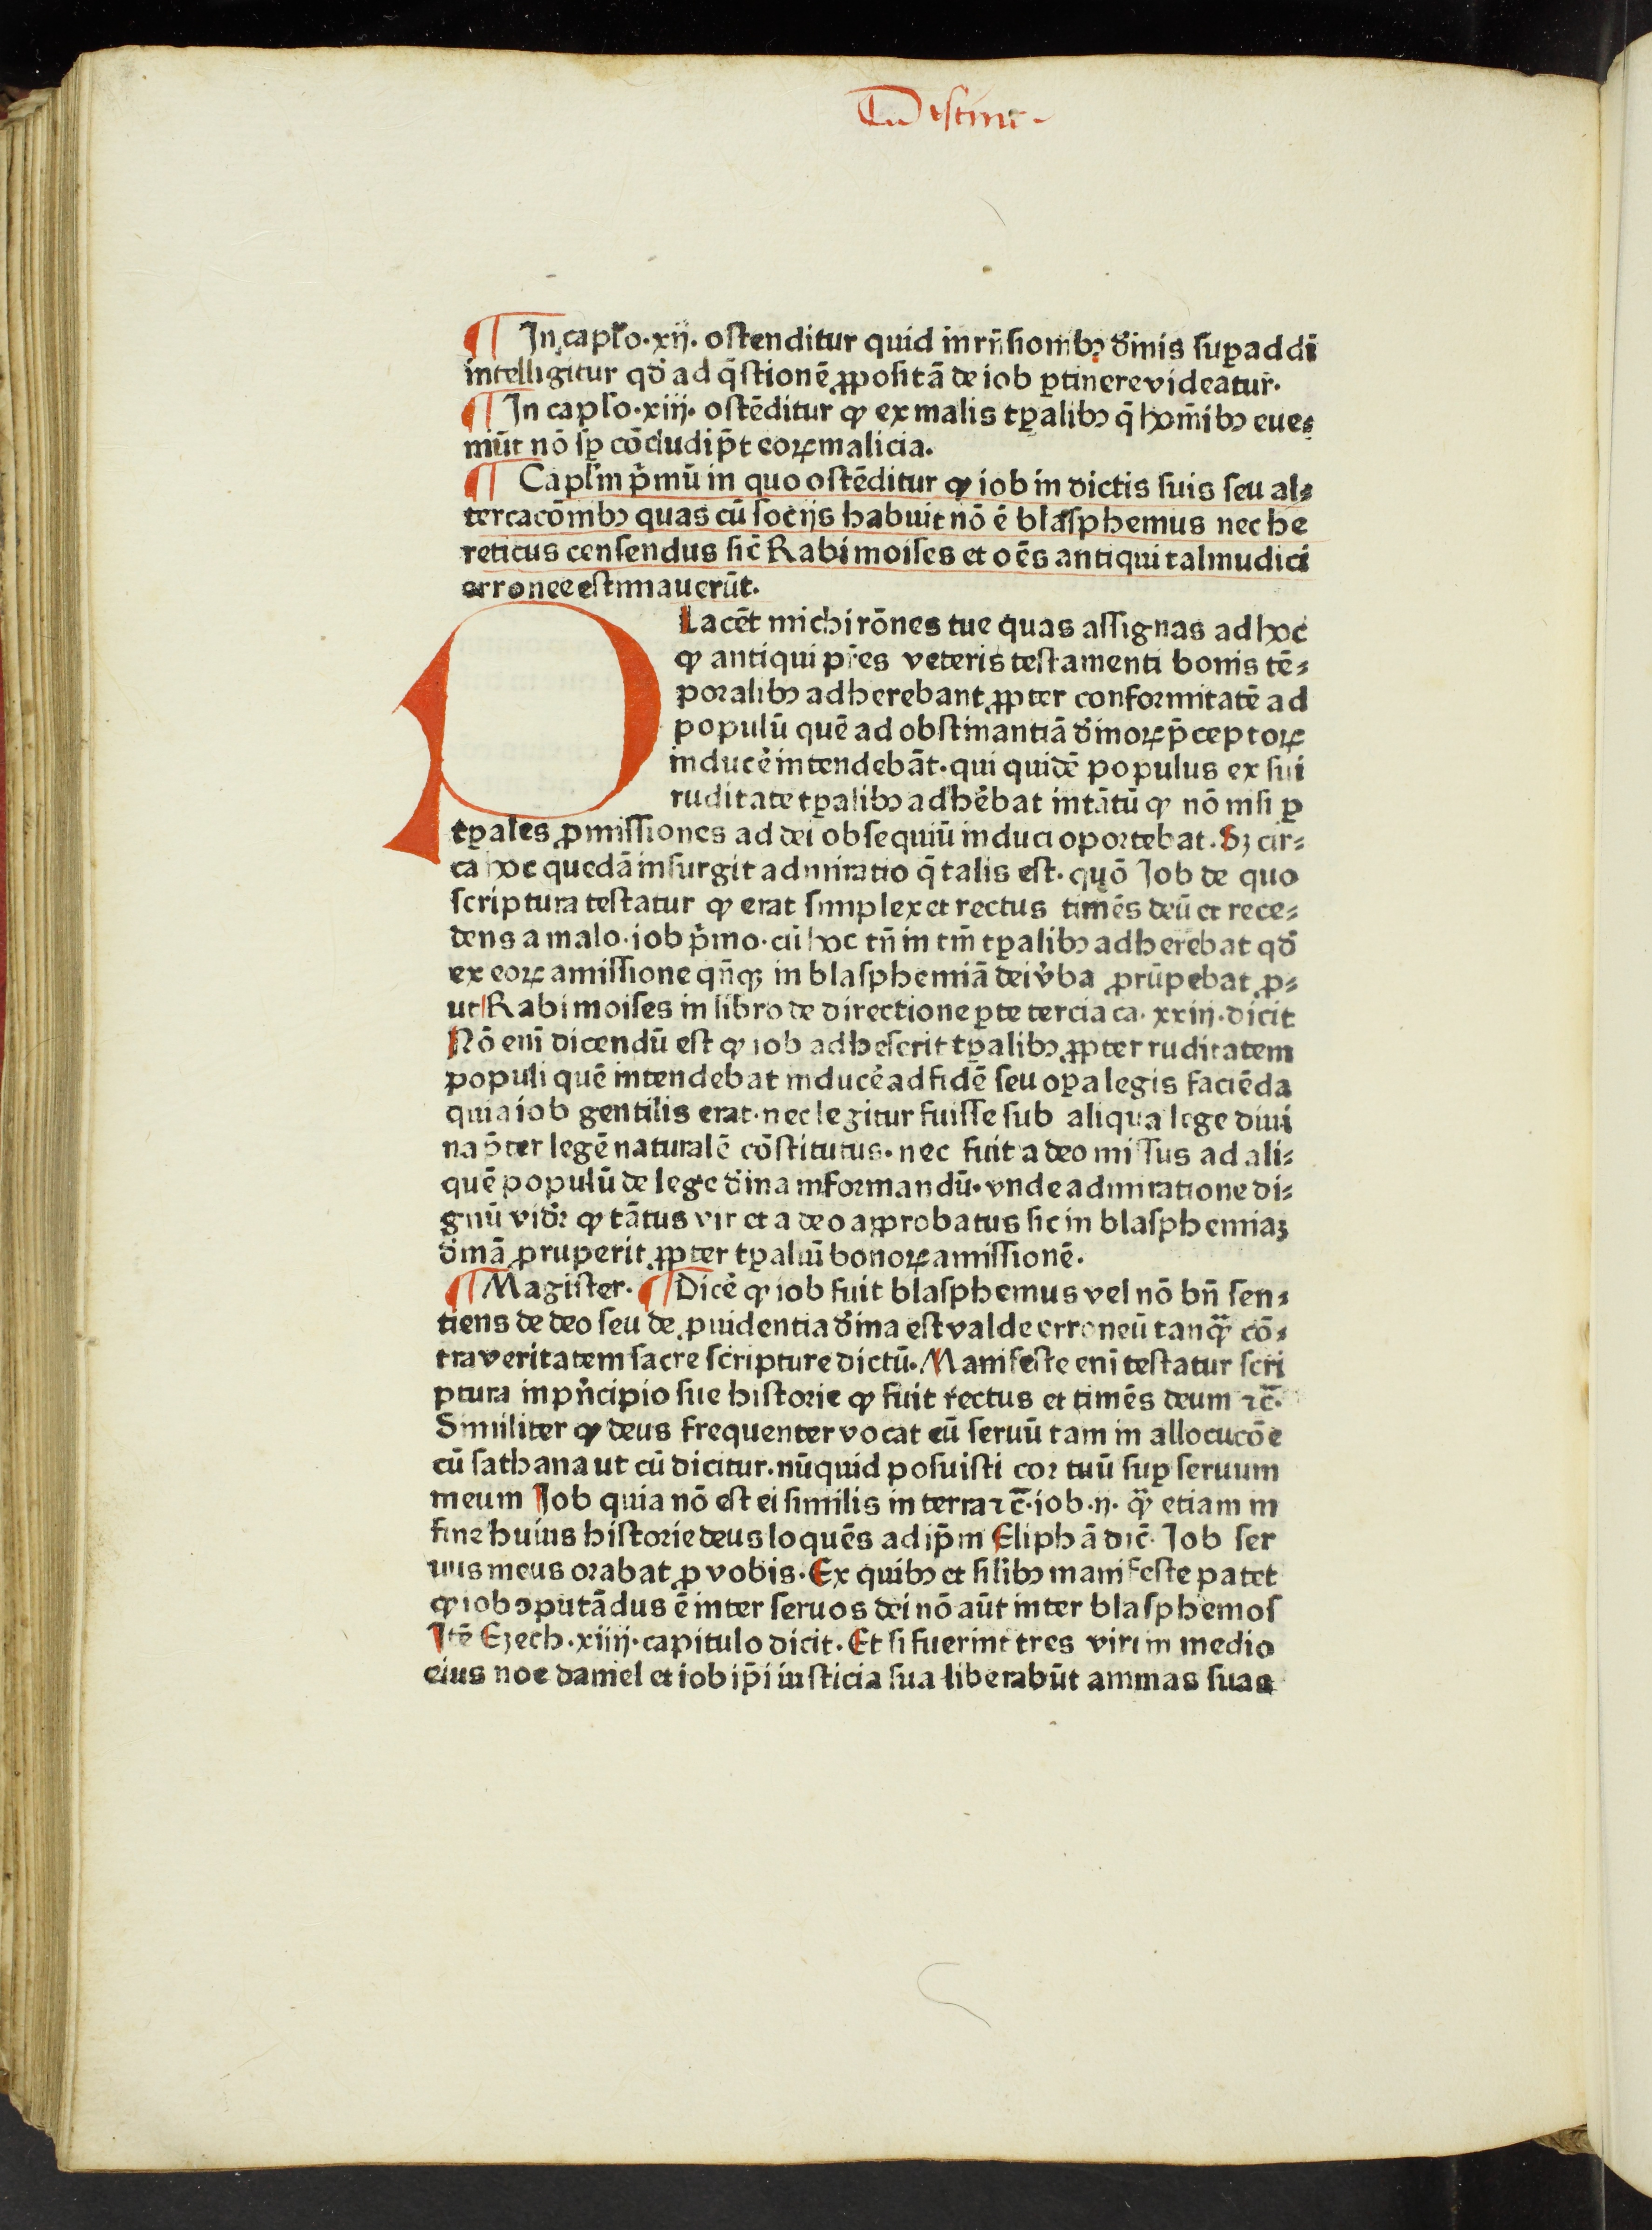 ¶ In capło·xij· ostenditur quid in rn̄sionibꝫ d̓inis suꝑaddi
intelligitur qd̓ ad q̄stionē ꝓpositā de iob ꝑtinere videatur·
¶ In capło·xiij· ostēditur ꝙ ex malis tꝑalibꝫ q̄ ho͞mibꝫ eue⸗
niūt nō sꝑ cōcludi p̄t eoꝝ malicia.
¶ Capłm p̓mū in quo ostēditur ꝙ iob in dictis suis seu al⸗
tercacōnibꝫ quas cū socijs habuit nō ē blasphemus nec he
reticus censendus sic̄ Rabi moises et oēs antiqui talmudici
erronee estimauerūt.
Placēt michi rōnes tue quas assignas ad hoc
ꝙ antiqui pr̄es veteris testamenti bonis tē⸗
poralibꝫ adherebant ꝓpter conformitatē ad
populū quē ad obstinantiā d̓inoꝝ p̄ceptoꝝ
inducē̓ intendebāt· qui quidē populus ex sui
ruditate tꝑalibꝫ adhēbat in tātū ꝙ nō nisi ꝑ
tꝑales ꝓmissiones ad dei obsequiū induci oportebat. Sꝫ cir⸗
ca hoc quedā insurgit admiratio q̄ talis est· quō Iob de quo
scriptura testatur ꝙ erat simplex et rectus timēs deū et rece⸗
dens a malo· iob p̓mo· cū hoc tn̄ in tm̄ tꝑalibꝫ adherebat qd̓
ex eoꝝ amissione qn̄qꝫ in blasphemiā dei v̓ba ꝓrūpebat ꝓ⸗
ut Rabi moises in libro de directione ꝑte tercia ca· xxiij· dicit
Nō eni dicendū est ꝙ iob adheserit tꝑalibꝫ ꝓpter ruditatem
populi quē intendebat inducē̓ ad fidē seu oꝑa legis faciēda
quia iob gentilis erat· nec legitur fuisse sub aliqua lege diui
na p̄ter legē naturalē cōstitutus· nec fuit a deo missus ad ali⸗
quē populū de lege d̓ina informandū· vnde admiratione di⸗
gnū vid̓r ꝙ tātus vir et a deo approbatus sic in blasphemiaꝫ
d̓inā ꝓruperit ꝓpter tꝑaliū bonoꝝ amissionē.
¶ Magister· ¶ Dicē̓ ꝙ iob fuit blasphemus vel nō bn̄ sen⸗
tiens de deo seu de ꝓuidentia d̓ina est valde erroneū tanqͣꝫ cō⸗
tra veritatem sacre scripture dictū· Manifeste eni testatur scri
ptura in pn̓cipio sue historie ꝙ fuit rectus et timēs deum ⁊c̄·
Similiter ꝙ deus frequenter vocat eū seruū tam in allocucōe
cū sathana ut cū dicitur· nūquid posuisti cor tuū suꝑ seruum
meum Iob quia nō est ei similis in terra ⁊c̄· iob·ij· qͣꝫ etiam in
fine huius historie deus loquēs ad ip̄m Eliphā dic̄· Iob ser
uus meus orabat ꝓ vobis· Ex quibꝫ et silibꝫ manifeste patet
ꝙ iob ↄputādus ē inter seruos dei nō aūt inter blasphemos
Itē Ezech·xiiij· capitulo dicit· Et si fuerint tres viri in medio
eius noe daniel et iob ip̄i iusticia sua liberabūt animas suas